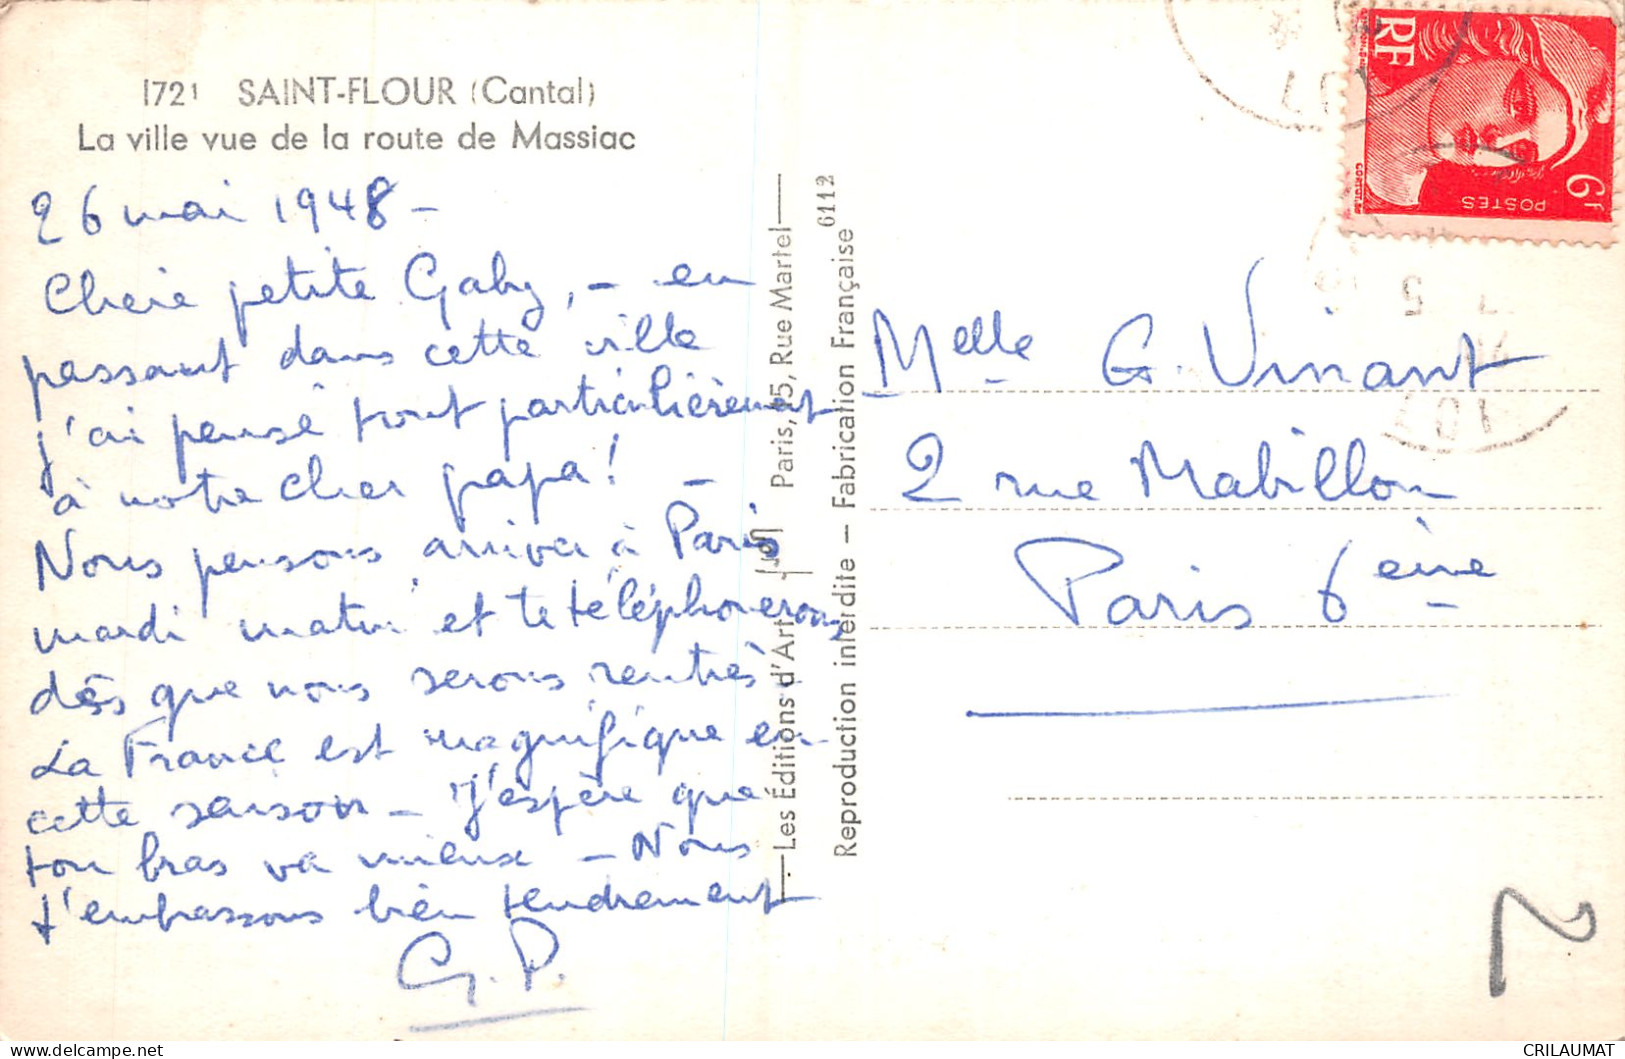 1721 SAINT-FLOUR (Cantal)
La ville vue de la route de Massiac
26 mai 1948 -
Chère petite Gaby, - en
passant dans cette ville
j'ai pensé tout particulièrement
à notre cher papa! -
Nous pensons arriver à Paris
mardi matin et te téléphonerons
dès que nous serons rentrés.
La France est magnifique en
cette saison - J'espère que
ton bras va mieux - Nous
t'embrassons bien tendrement
G.P.
Les Éditions d'Art Paris, 15, Rue Martel
Reproduction interdite - Fabrication Française
6112
RF
POSTES
6f
LOT
5
LOT
Melle G. Vinant
2 rue Mabillon
Paris 6ème
2
CRILAUMAT